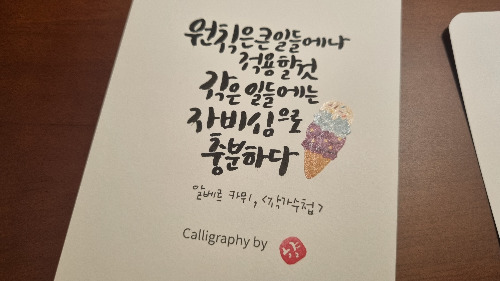 원칙은 큰일들에나
적용할 것
작은 일들에는
자비심으로
충분하다
알베르 카뮈, <작가수첩>
Calligraphy by 양